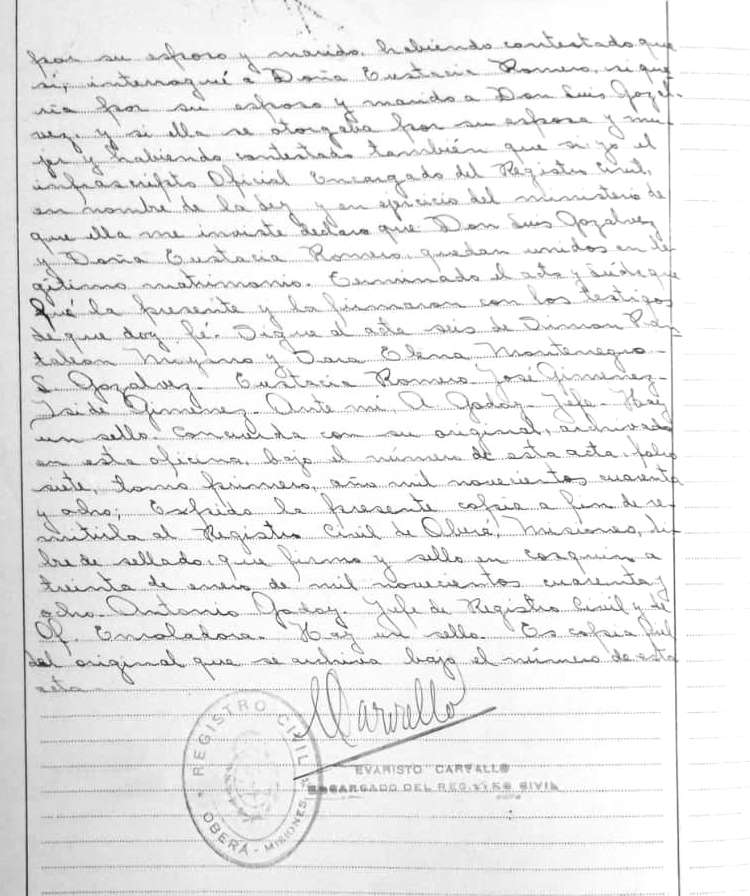 por su esposo y marido, habiendo contestado que
sí, interrogué a Doña Eustacia Romero, si que
ría por su esposo y marido a Don Luis Gozal-
vez, y si ella se otorgaba por su esposa y mu-
jer y habiendo contestado también que si yo el
infrascripto Oficial Encargado del Registro Civil,
en nombre de la Ley y en ejercicio del ministerio de
que ella me inviste declaro que Don Luis Gozalvez
y Doña Eustacia Romero, quedan unidos en le-
gítimo matrimonio. Terminado el acto y leída que
fué la presente y la firmaron con los testigos
de que doy fé. Sigue el acta seis de Simon Pan-
taleon Moyano y Sara Elena Montenegro -
L. Gozalvez - Eustacia Romero - José Gimenez -
Gimenez - Ante mi, A Godoy - Jefe - Hay
un sello. Concuerda con su original, archivado
en esta oficina, bajo el número de esta acta, folio
siete, tomo primero, año mil novecientos cuarenta
y ocho; Expido la presente copia a fin de re-
mitirla al Registro Civil de Oberá, Misiones, li-
bre de sellado, que firmo y sello en Cosquín, a
treinta de enero de mil novecientos cuarenta y
ocho. Antonio Godoy - Jefe de Registro Civil y de
Of. Enroladora. Hay un sello. Es copia fiel
del original que se archiva bajo el número de esta
acta -
Carvallo
REGISTRO CIVIL
OBERÁ - MISIONES
EVARISTO CARVALLO
ENCARGADO DEL REGISTRO CIVIL